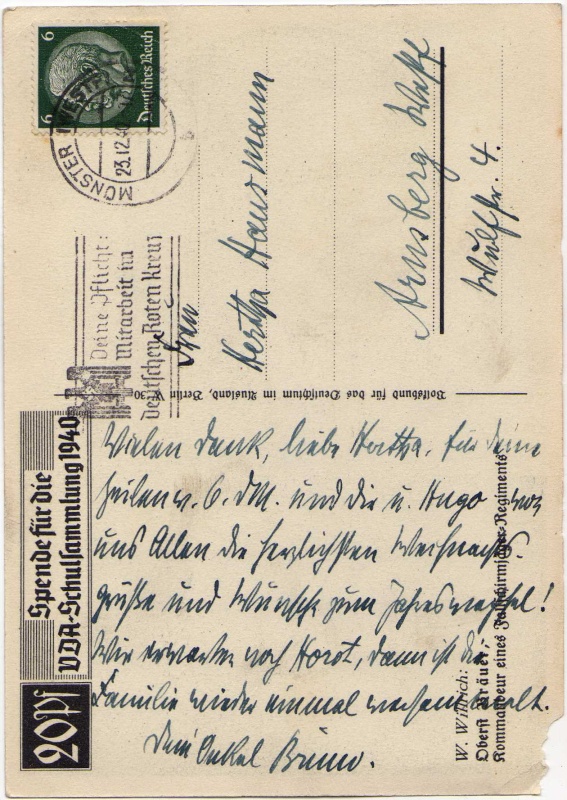 6 6
Deutsches Reich
MÜNSTER (WESTF)
23.12.40
Deine Pflicht:
Mitarbeit im
Deutschen Roten Kreuz
Frau
Hertha Hausmann
Arnsberg Westf
Wulfstr. 4.
Volksbund für das Deutschtum im Ausland, Berlin W 30
Spende für die
VDA-Schulsammlung 1940
20 Pf
W. Willrich:
Oberst Bräuer,
Kommandeur eines Fallschirmjäger-Regiments
Vielen Dank, liebe Hertha, für Deine
Zeilen v. 6. d.M. und die u. Hugo von
uns Allen die herzlichsten Weihnachts-
grüße und Wünsche zum Jahreswechsel!
Wir erwarten noch Horst, dann ist die
Familie wieder einmal versammelt.
Dein Onkel Bruno.